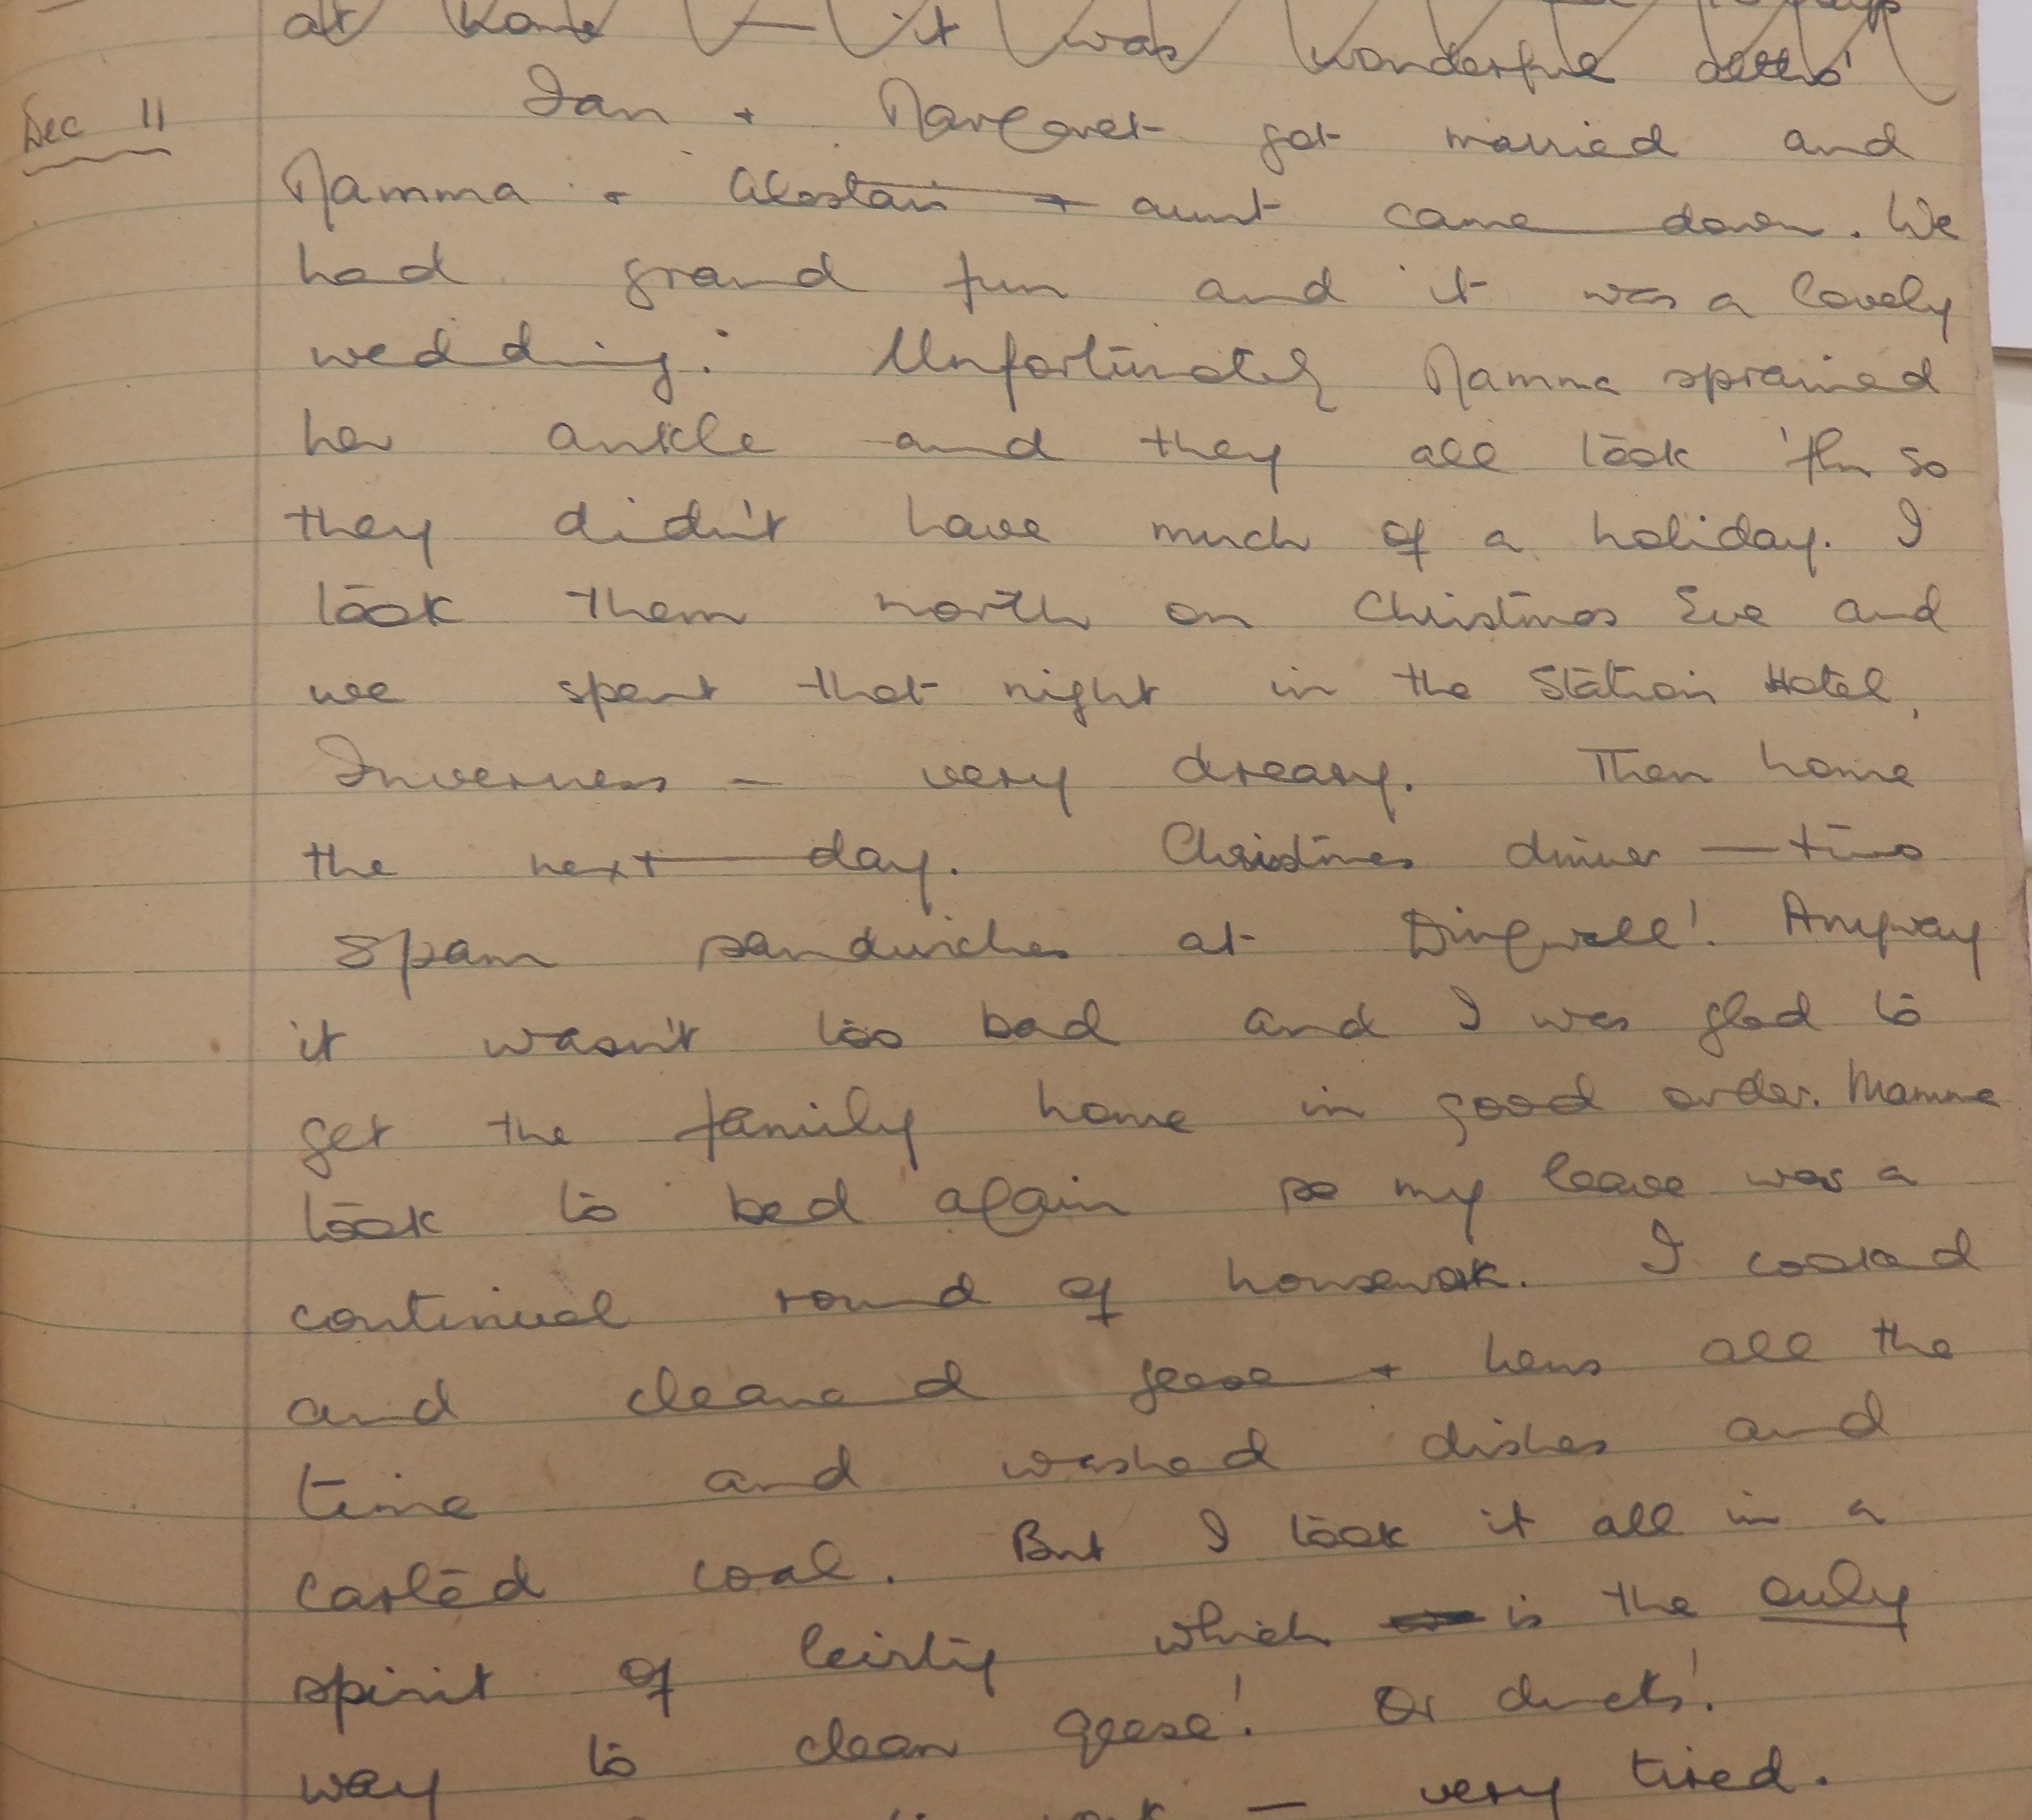 at home — it was wonderful
Dec 11
Ian + Margaret got married and
Mamma + Alastair + aunt came down. We
had grand fun and it was a lovely
wedding. Unfortunately Mamma sprained
her ankle and they all took 'flu so
they didn't have much of a holiday. I
took them north on Christmas Eve and
we spent that night in the Station Hotel,
Inverness – very dreary. Then home
the next day. Christmas dinner — two
Spam sandwiches at Dingwall! Anyway
it wasn't too bad and I was glad to
get the family home in good order. Mamma
took to bed again so my leave was a
continual round of housework. I cooked
and cleaned geese + hens all the
time and washed dishes and
carted coal. But I took it all in a
spirit of which is the only
way to clean geese! Or ducks!
— very tired.